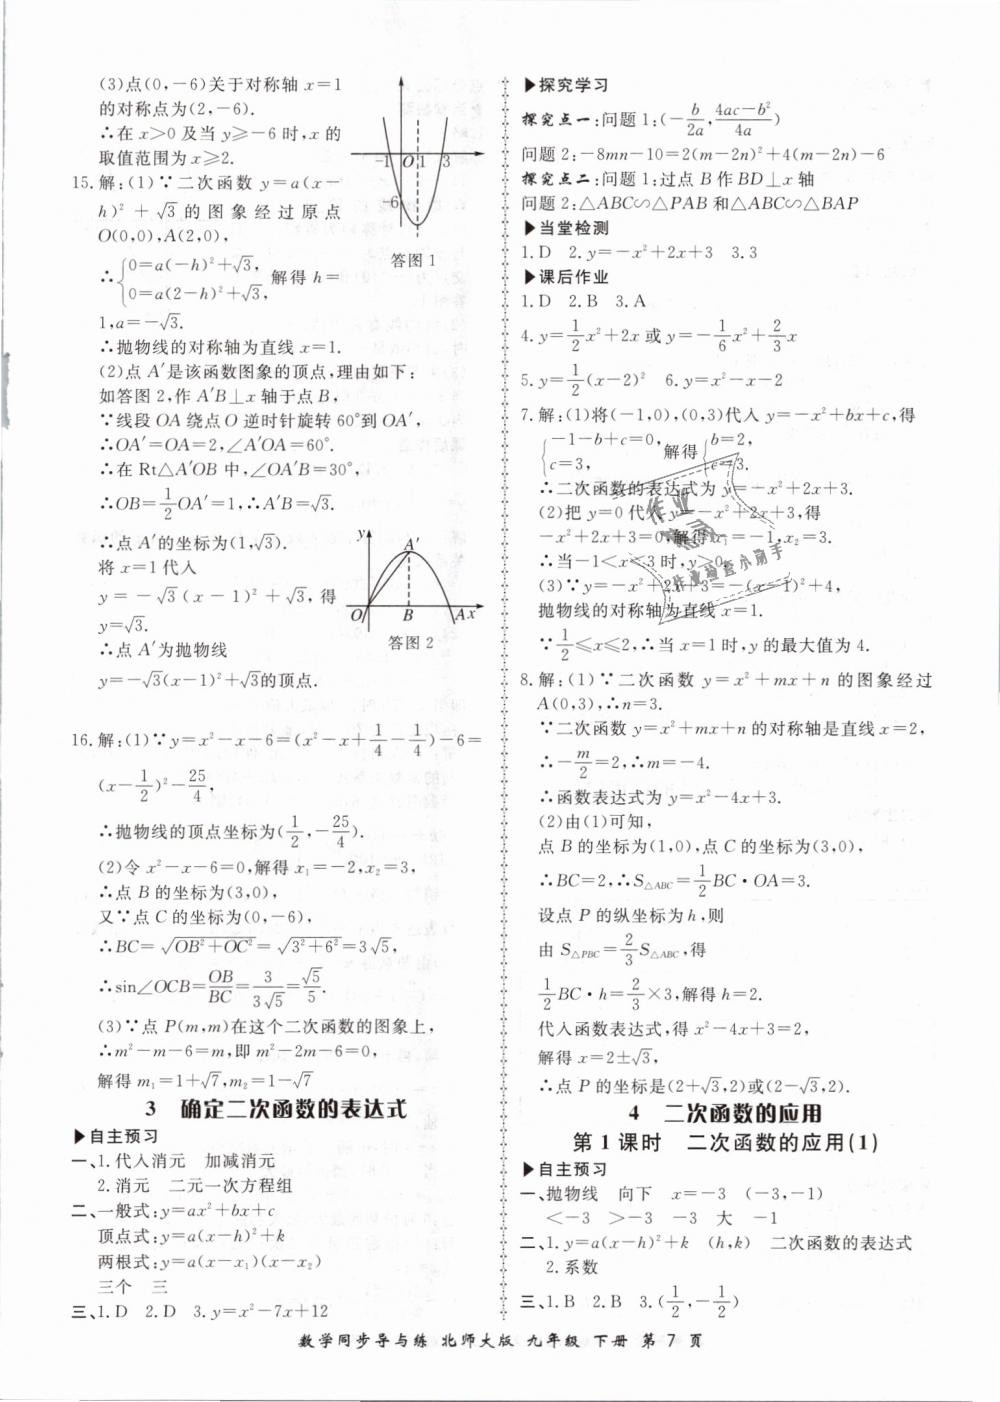 (3)点(0,-6)关于对称轴 x=1
的对称点为(2,-6).
∴在 x>0 及当 y≥-6 时,x 的
取值范围为 x≥2.
-1 O 1 3
6
答图 1
15.解:(1)∵二次函数 y=a(x-
h)²+√3 的图象经过原点
O(0,0),A(2,0),
∴{0=a(-h)²+√3,
0=a(2-h)²+√3, 解得 h=
1,a=-√3.
∴抛物线的对称轴为直线 x=1.
(2)点 A′是该函数图象的顶点,理由如下:
如答图 2,作 A′B⊥x 轴于点 B,
∵线段 OA 绕点 O 逆时针旋转 60°到 OA′,
∴OA′=OA=2,∠A′OA=60°.
∴在 Rt△A′OB 中,∠OA′B=30°,
∴OB=1/2OA′=1,∴A′B=√3.
∴点 A′的坐标为(1,√3).
将 x=1 代入
y=-√3(x-1)²+√3,得
y=√3.
∴点 A′为抛物线
y=-√3(x-1)²+√3的顶点.
y A′
O B A x
答图 2
16.解:(1)∵y=x²-x-6=(x²-x+1/4-1/4)-6=
(x-1/2)²-25/4,
∴抛物线的顶点坐标为(1/2,-25/4).
(2)令 x²-x-6=0,解得 x₁=-2,x₂=3,
∴点 B 的坐标为(3,0),
又∵点 C 的坐标为(0,-6),
∴BC=√(OB²+OC²)=√(3²+6²)=3√5,
∴sin∠OCB=OB/BC=3/(3√5)=√5/5.
(3)∵点 P(m,m)在这个二次函数的图象上,
∴m²-m-6=m,即 m²-2m-6=0,
解得 m₁=1+√7,m₂=1-√7
3 确定二次函数的表达式
▶自主预习
一、1.代入消元 加减消元
2.消元 二元一次方程组
二、一般式:y=ax²+bx+c
顶点式:y=a(x-h)²+k
两根式:y=a(x-x₁)(x-x₂)
三个 三
三、1.D 2.D 3.y=x²-7x+12
▶探究学习
探究点一:问题 1:(-b/2a,(4ac-b²)/4a)
问题 2:-8mn-10=2(m-2n)²+4(m-2n)-6
探究点二:问题 1:过点 B 作 BD⊥x 轴
问题 2:△ABC∽△PAB 和△ABC∽△BAP
▶当堂检测
1.D 2.y=-x²+2x+3 3.3
▶课后作业
1.D 2.B 3.A
4.y=1/2x²+2x 或 y=-1/6x²+2/3x
5.y=1/2(x-2)² 6.y=x²-x-2
7.解:(1)将(-1,0),(0,3)代入 y=-x²+bx+c,得
{-1-b+c=0,
c=3, 解得{b=2,
c=3.
∴二次函数的表达式为 y=-x²+2x+3.
(2)把 y=0 代入 y=-x²+2x+3,得
-x²+2x+3=0,解得x₁=-1,x₂=3.
∴当-1<x<3 时,y>0.
(3)∵y=-x²+2x+3=-(x-1)²+4,
抛物线的对称轴为直线 x=1.
∵1/2≤x≤2,∴当 x=1 时,y 的最大值为 4.
8.解:(1)∵二次函数 y=x²+mx+n 的图象经过
A(0,3),∴n=3.
∵二次函数 y=x²+mx+n 的对称轴是直线 x=2,
∴-m/2=2,∴m=-4.
∴函数表达式为 y=x²-4x+3.
(2)由(1)可知,
点 B 的坐标为(1,0),点 C 的坐标为(3,0),
∴BC=2,∴S△ABC=1/2BC·OA=3.
设点 P 的纵坐标为 h,则
由 S△PBC=2/3S△ABC,得
1/2BC·h=2/3×3,解得 h=2.
代入函数表达式,得 x²-4x+3=2,
解得 x=2±√3,
∴点 P 的坐标是(2+√3,2)或(2-√3,2).
4 二次函数的应用
第 1 课时 二次函数的应用(1)
▶自主预习
一、抛物线 向下 x=-3 (-3,-1)
<-3 >-3 -3 大 -1
二、1.y=a(x-h)²+k (h,k) 二次函数的表达式
2.系数
三、1.B 2.B 3.(1/2,-1/2)
数学同步导与练 北师大版 九年级 下册 第 7 页